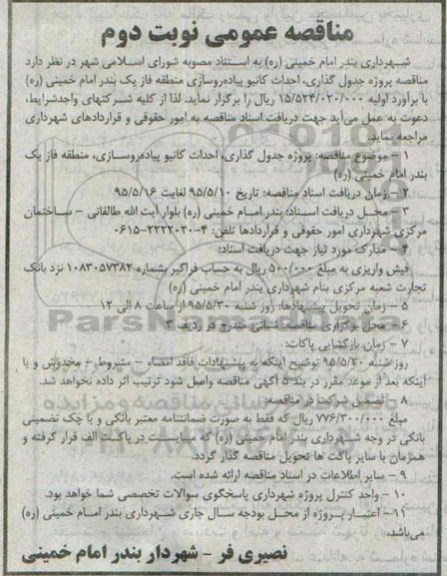 مناقصه عمومی نوبت دوم
شهرداری بندر امام خمینی (ره) به استناد مصوبه شورای اسلامی شهر در نظر دارد
مناقصه پروژه جدول گذاری، احداث کانیو پیاده‌روسازی منطقه فاز یک بندر امام خمینی (ره)
با برآورد اولیه ۱۵/۵۲۴/۰۲۰/۰۰۰ ریال را برگزار نماید. لذا از کلیه شرکتهای واجدشرایط،
دعوت به عمل می‌آید جهت دریافت اسناد مناقصه به امور حقوقی و قراردادهای شهرداری
مراجعه نماید.
۱ – موضوع مناقصه: پروژه جدول گذاری، احداث کانیو پیاده‌روسازی، منطقه فاز یک
بندر امام خمینی (ره)
۲ – زمان دریافت اسناد مناقصه: تاریخ ۹۵/۵/۱۰ لغایت ۹۵/۵/۱۶
۳ – محل دریافت اسناد: بندر امام خمینی (ره) بلوار آیت الله طالقانی – ساختمان
مرکزی شهرداری امور حقوقی و قراردادها تلفن: ۴–۰۶۱۵۲۲۲۲۰۲۰
۴ – مدارک مورد نیاز جهت دریافت اسناد:
فیش واریزی به مبلغ ۵۰۰/۰۰۰ ریال به حساب فراگیر بشماره ۱۰۸۳۰۵۷۳۸۲ نزد بانک
تجارت شعبه مرکزی بنام شهرداری بندر امام خمینی (ره)
۵ – زمان تحویل پیشنهادها: روز شنبه ۹۵/۵/۳۰ از ساعت ۸ الی ۱۲
۶ – محل برگزاری مناقصه: نشانی مندرج در ردیف ۳
۷ – زمان بازگشایی پاکات:
روز شنبه ۹۵/۵/۳۰ توضیح اینکه به پیشنهادات فاقد امضاء – مشروط – مخدوش و یا
اینکه بعد از موعد مقرر در بند ۵ آگهی مناقصه واصل شود ترتیب اثر داده نخواهد شد.
۸ – تضمین شرکت در مناقصه:
مبلغ ۷۷۶/۳۰۰/۰۰۰ ریال که فقط به صورت ضمانتنامه معتبر بانکی و یا چک تضمینی
بانکی در وجه شهرداری بندر امام خمینی (ره) که میبایست در پاکت الف قرار گرفته و
همزمان با سایر پاکت ها تحویل مناقصه گذار گردد.
۹ – سایر اطلاعات در اسناد مناقصه ارائه شده است.
۱۰ – واحد کنترل پروژه شهرداری پاسخگوی سوالات تخصصی شما خواهد بود.
۱۱– اعتبار پروژه از محل بودجه سال جاری شهرداری بندر امام خمینی (ره)
می‌باشد.
نصیری فر – شهردار بندر امام خمینی